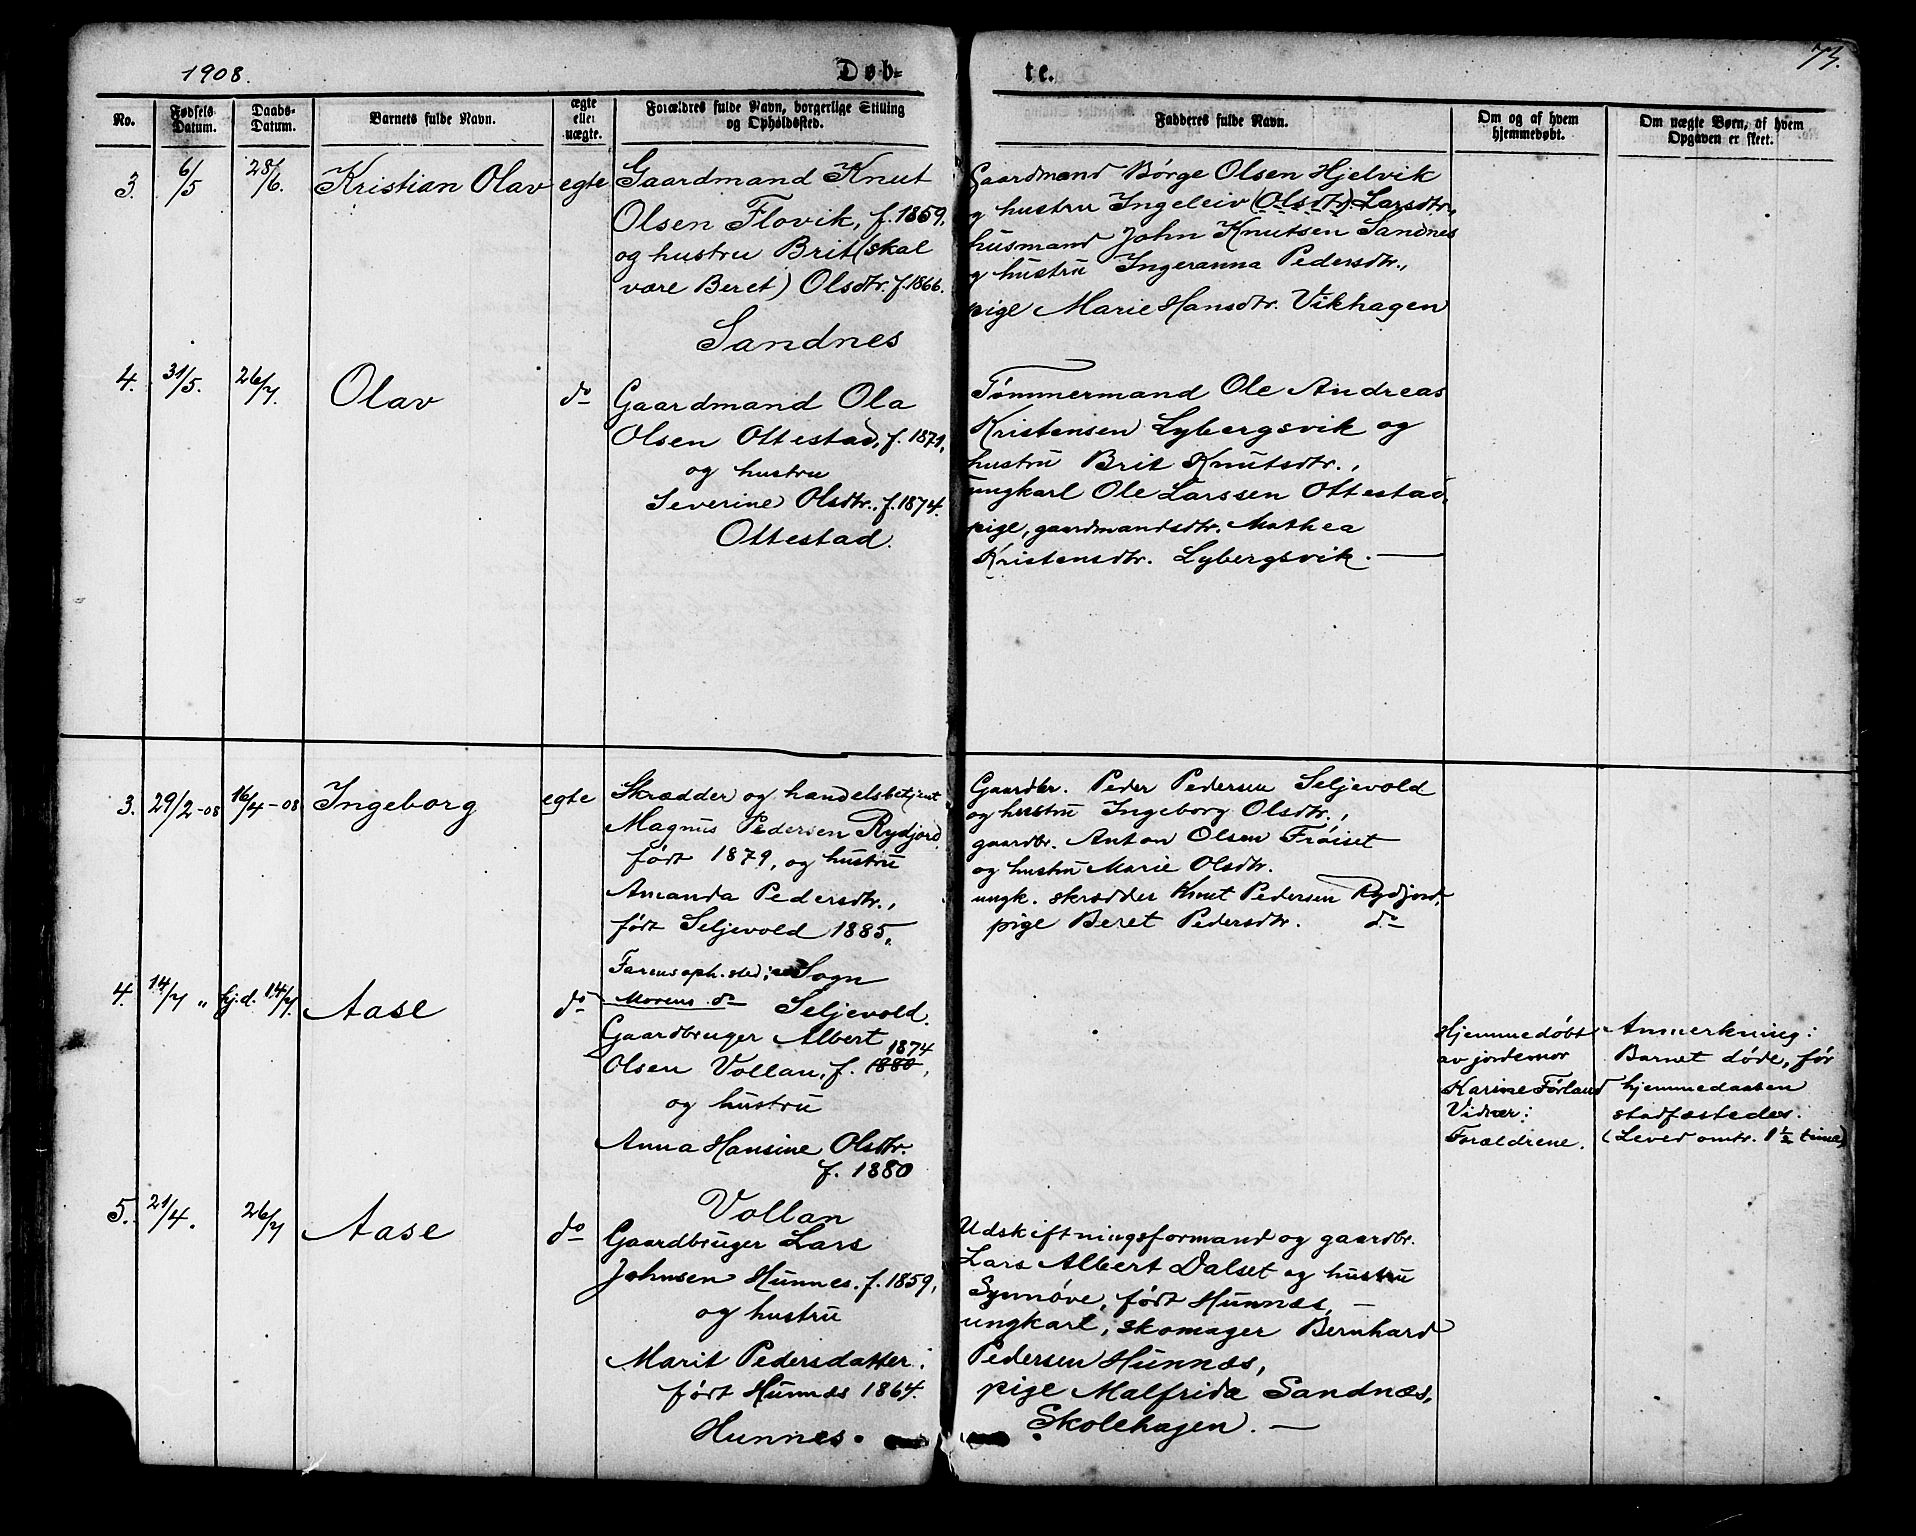 1908.
Døb-
te.
73.
No.
Fødsels Datum.
Daabs-Datum.
Barnets fulde Navn.
ægte eller uægte.
Forældres fulde Navn, borgerlige Stilling
og Opholdssted.
Fadderes fulde Navn.
Om og af hvem
hjemmedøbt.
Om uægte Børn, af hvem
Opgaven er skeet.
3. 6/5 28/6. Kristian Olav egte
Gaardmand Knut
Olsen Flovik, f. 1859,
og hustru Brit (skal
være Beret) Olsdtr. f. 1866.
Sandnes
Gaardmand Børge Olsen Hjelvik
og hustru Ingeleiv (Olsdtr.) Larsdtr.,
husmand John Knutsen Sandnes
og hustru Ingeranna Pedersdtr.,
pige Marie Hansdtr. Vikhagen
4. 31/5. 26/7. Olav do
Gaardmand Ola
Olsen Ottestad, f. 1871,
og hustru
Severine Olsdtr., f. 1874.
Ottestad.
Tømmermand Ole Andreas
Kristensen Lybergsvik og
hustru Brit Knutsdtr.,
ungkarl Ole Larssen Ottestad,
pige, gaardmandsdtr. Mathea
Kristensdtr. Lybergsvik. —
3. 29/2-08 16/4-08 Ingeborg egte
Skrædder og handelsbetjent
Magnus Pedersen Rydjord,
født 1879, og hustru
Amanda Pedersdtr.,
født Seljevold 1885.
Farens oph. sted: Sogn
Morens do Seljevold.
Gaardbr. Peder Pedersen Seljevold
og hustru Ingeborg Olsdtr.,
gaardbr. Anton Olsen Frøiset
og hustru Marie Olsdtr.
ungk. skrædder Knut Pedersen Rydjord,
pige Beret Pedersdtr. do
4. 14/7 " hj.d. 14/7. Aase do
Gaardbruger Albert
1874
Olsen Vollan, f. 1880,
og hustru
Anna Hansine Olsdtr.
f. 1880
Vollan
Hjemmedøbt
av jordemor
Karine Førland
Vidner:
Forældrene.
Anmerkning:
Barnet døde, før
hjemmedaaben
stadfæstedes.
(Leved omtr. 1 1/2 time)
5. 21/4. 26/7 Aase do
Gaardbruger Lars
Johnsen Hunnes. f. 1859,
og hustru
Marit Pedersdatter.
født Hunnæs 1864.
Hunnes.
Udskiftningsformand og gaardbr.
Lars Albert Dalset og hustru
Synnøve, født Hunnæs, —
ungkarl, skomager Bernhard
Pedersen Hunnæs,
pige Malfrida Sandnæs,
Skolehagen. —